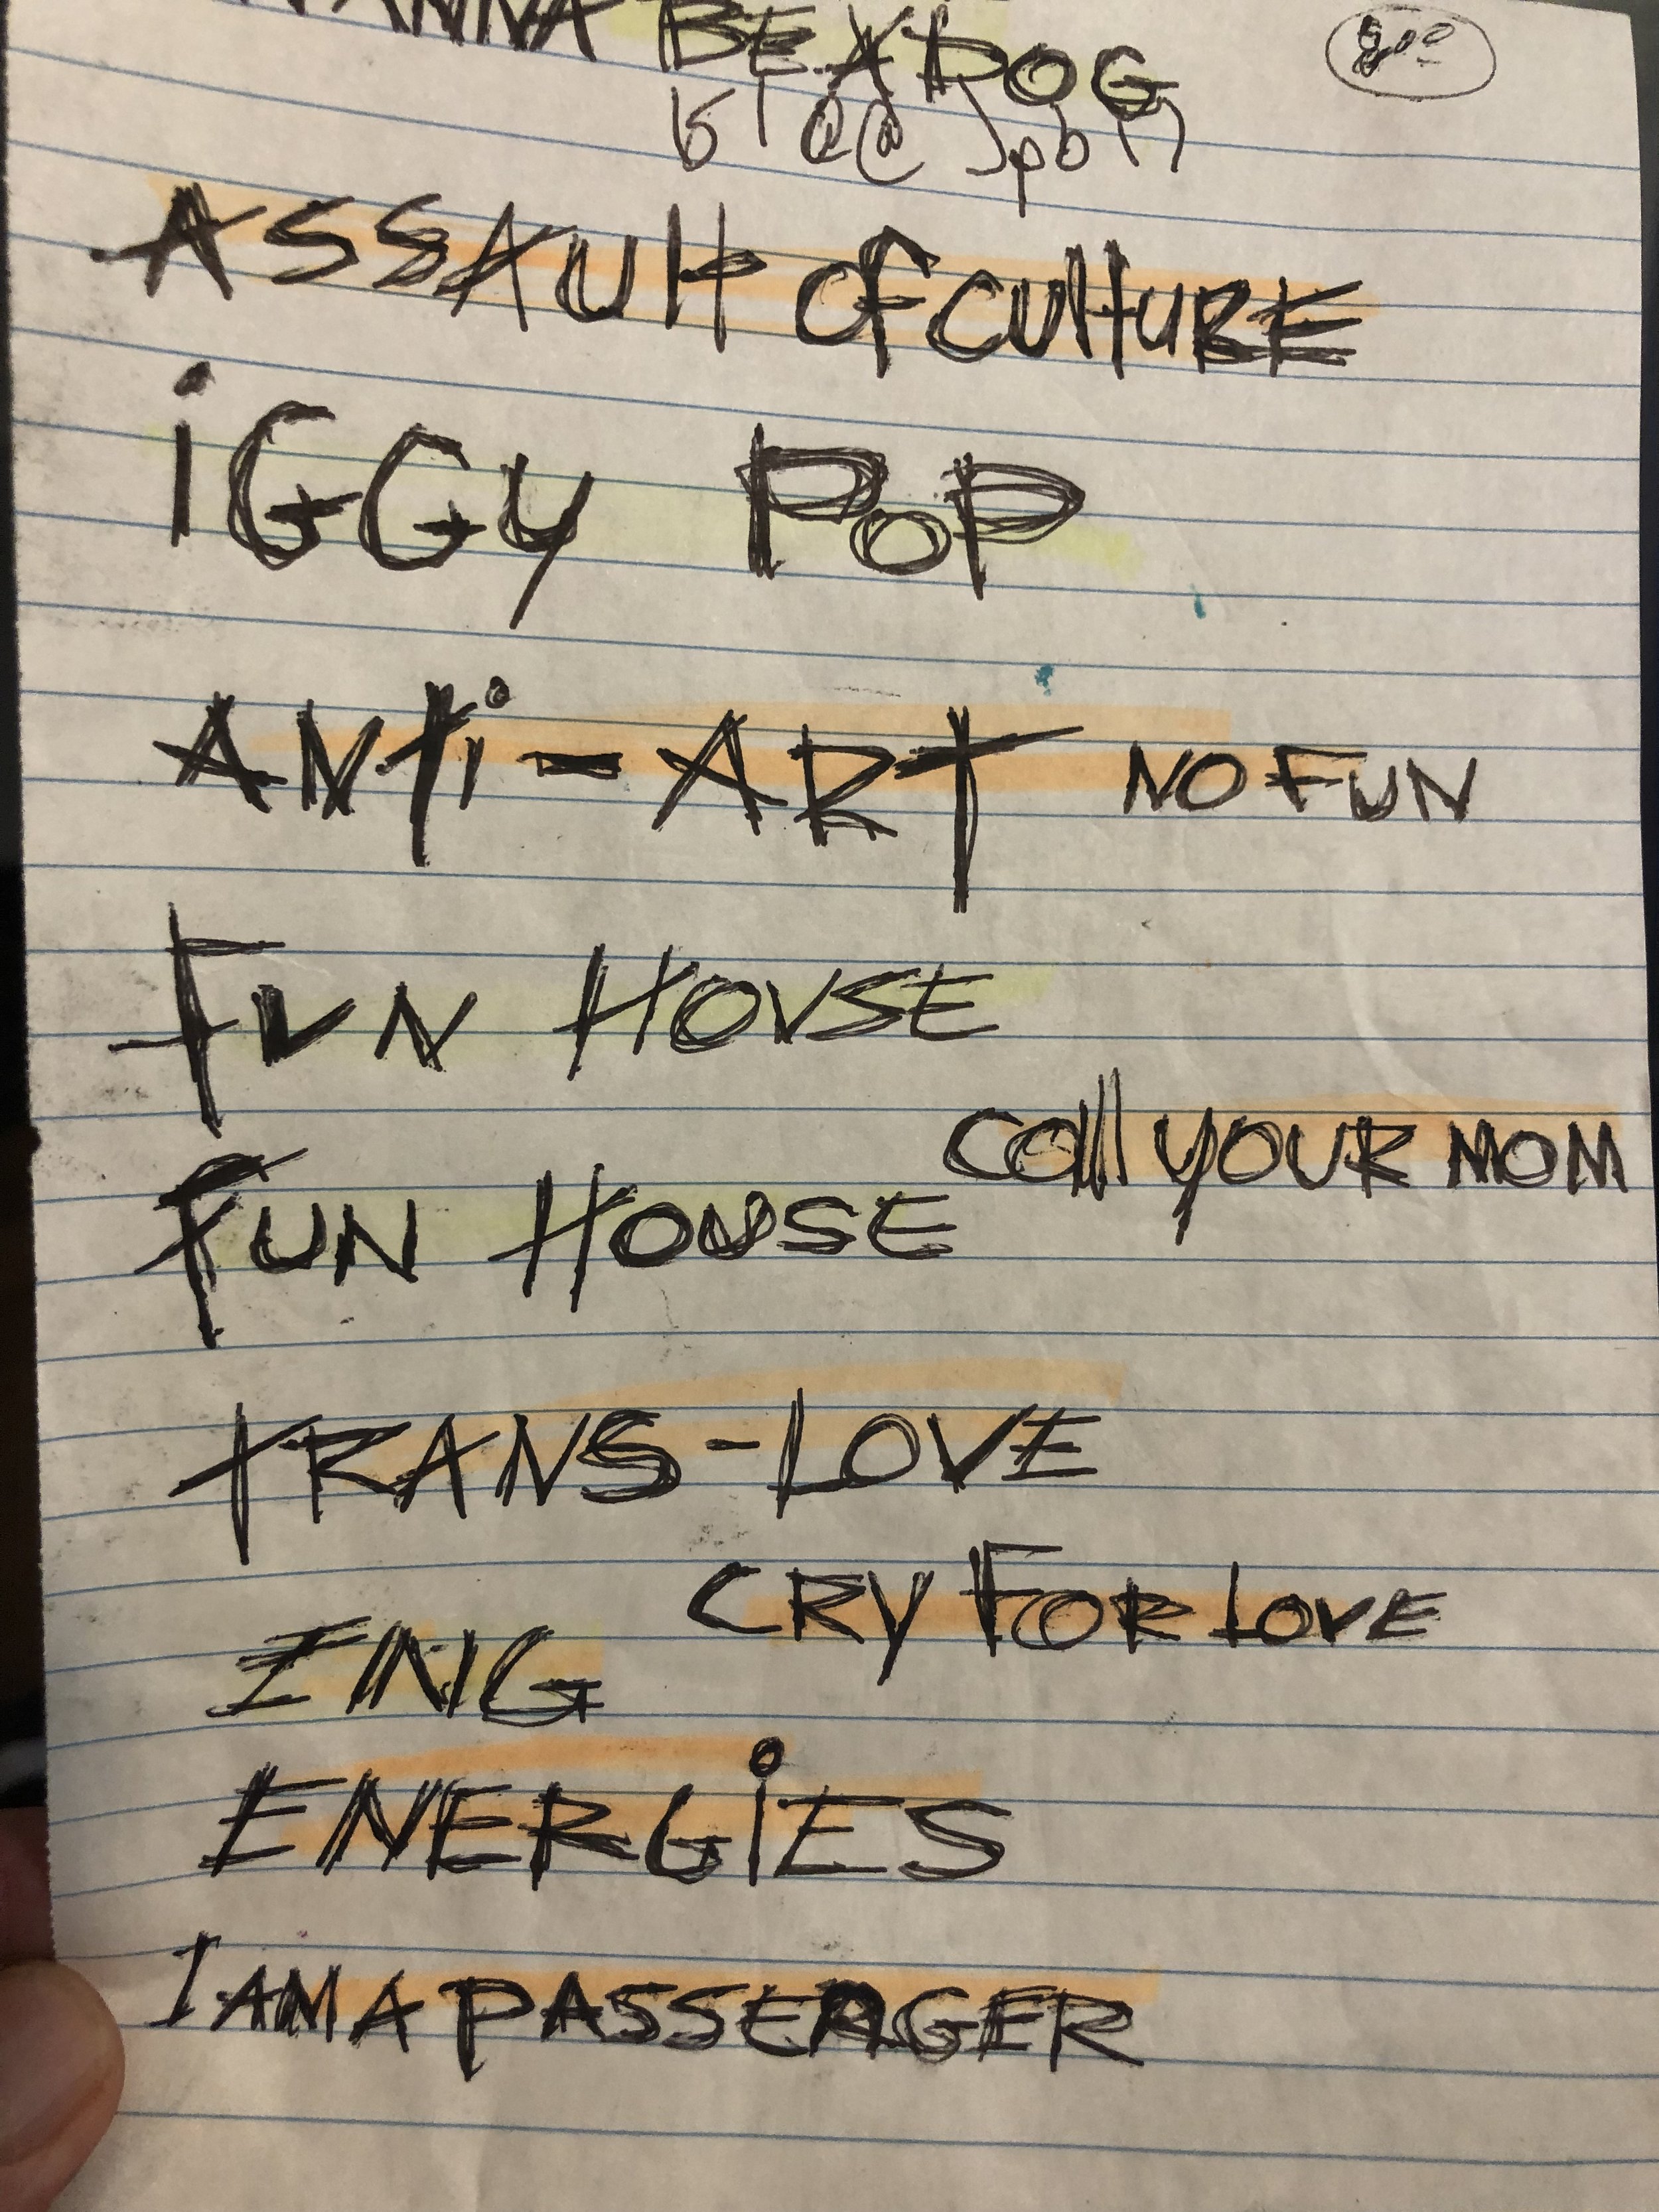 WANNA BE A DOG
ASSAULT OF CULTURE
iGGY POP
ANTi-ART NO FUN
FUN HOUSE
CALL YOUR MOM
FUN HOUSE
TRANS-LOVE
CRY FOR LOVE
ENERGiES
I AM A PASSENGER